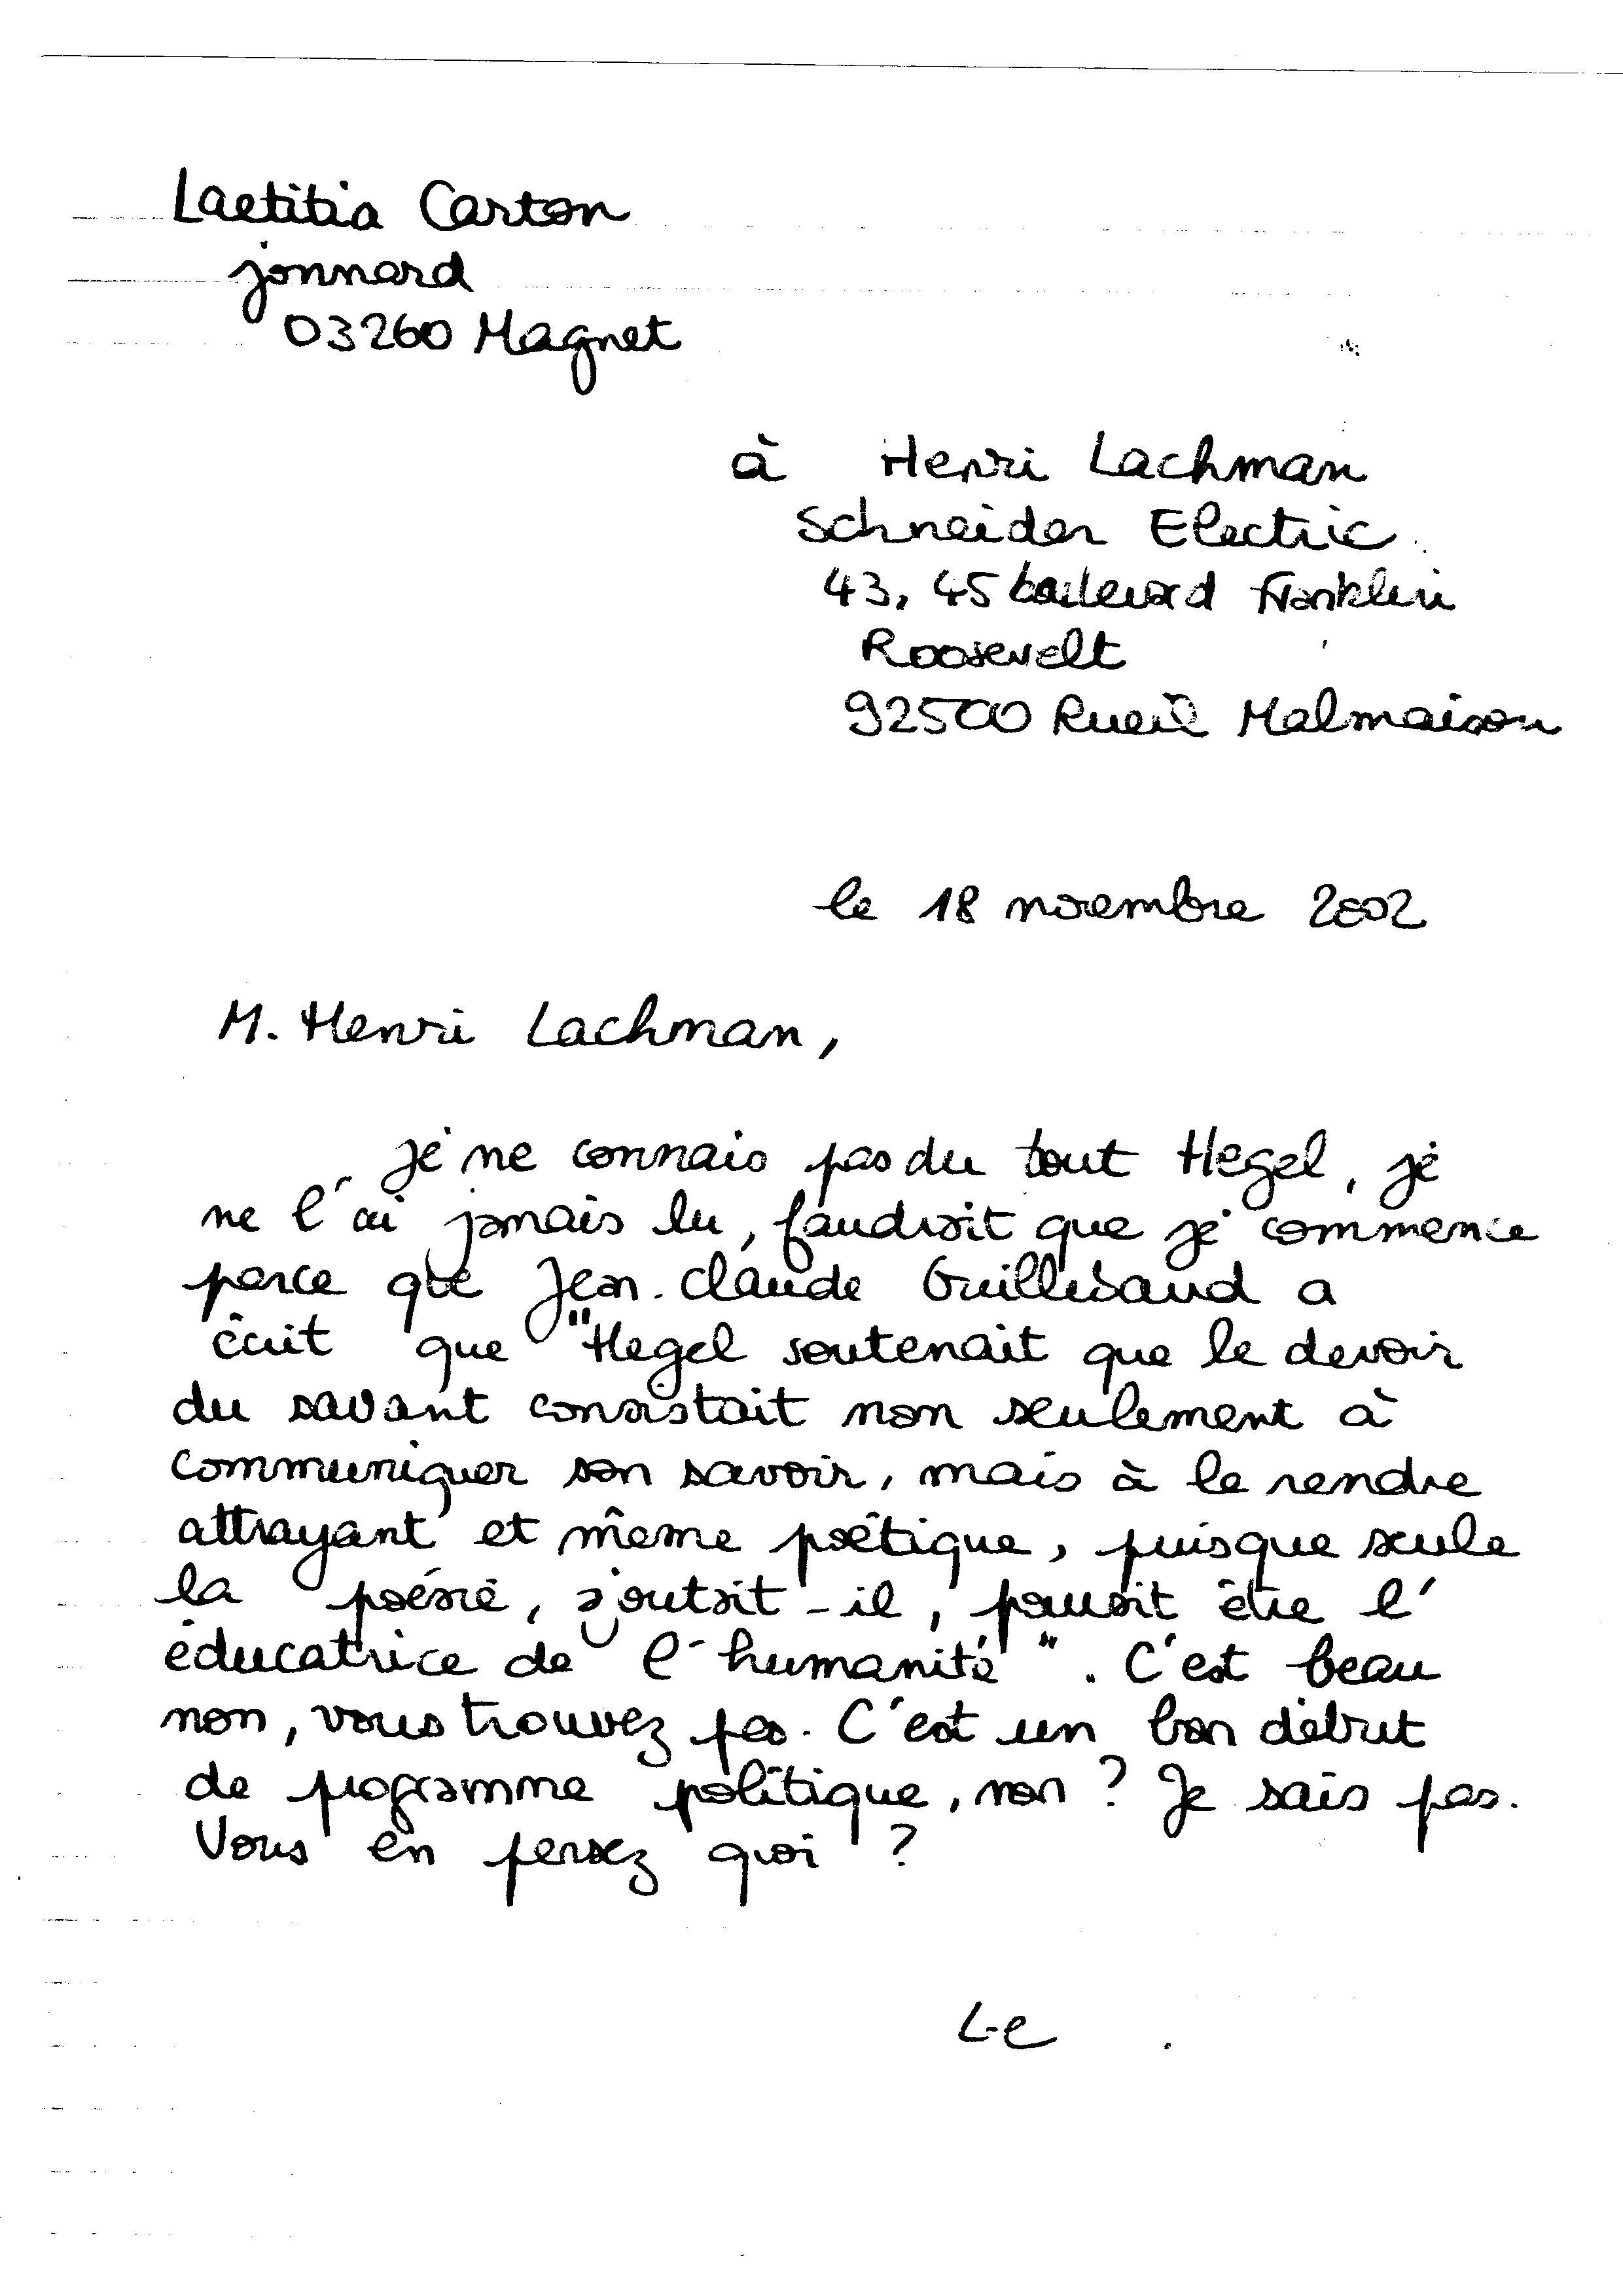 Laetitia Carton
jonnard
03260 Magnet
à Henri Lachman
Schneider Electric
43, 45 boulevard Franklin
Roosevelt
92500 Rueil Malmaison
le 18 novembre 2002
M. Henri Lachman,
Je ne connais pas du tout Hegel, je
ne l'ai jamais lu, faudrait que je commence
parce que Jean-Claude Guillebaud a
écrit que "Hegel soutenait que le devoir
du savant consistait non seulement à
communiquer son savoir, mais à le rendre
attrayant et même poétique, puisque seule
la poésie, ajoutait-il, pouvait être l'
éducatrice de l'humanité". C'est beau
non, vous trouvez pas. C'est un bon début
de programme politique, non ? Je sais pas.
Vous en pensez quoi ?